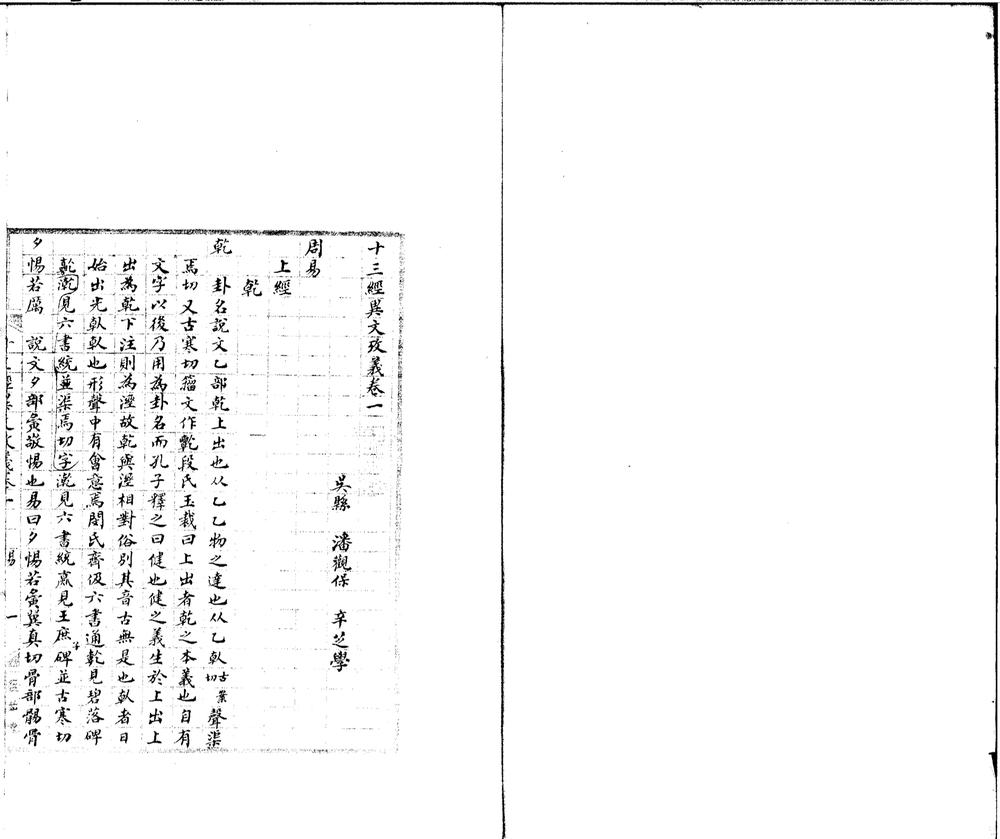 十三經異文攷義卷一
吳縣 潘觀保 辛芝學
周易
上經
乾
乾 卦名說文乙部乾上出也从乙乙物之達也从乙倝古案切聲渠
焉切又古寒切籀文作乾段氏玉裁曰上出者乾之本義也自有
文字以後乃用為卦名而孔子釋之曰健也健之義生於上出上
出為乾下注則為溼故乾與溼相對俗別其音古無是也倝者日
始出光倝倝也形聲中有會意焉閔氏齊伋六書通乾見碧落碑
見六書統並渠焉切字漧見六書統 見王庶子碑並古寒切
夕惕若厲 說文夕部夤敬惕也易曰夕惕若夤翼真切骨部骨
易 一